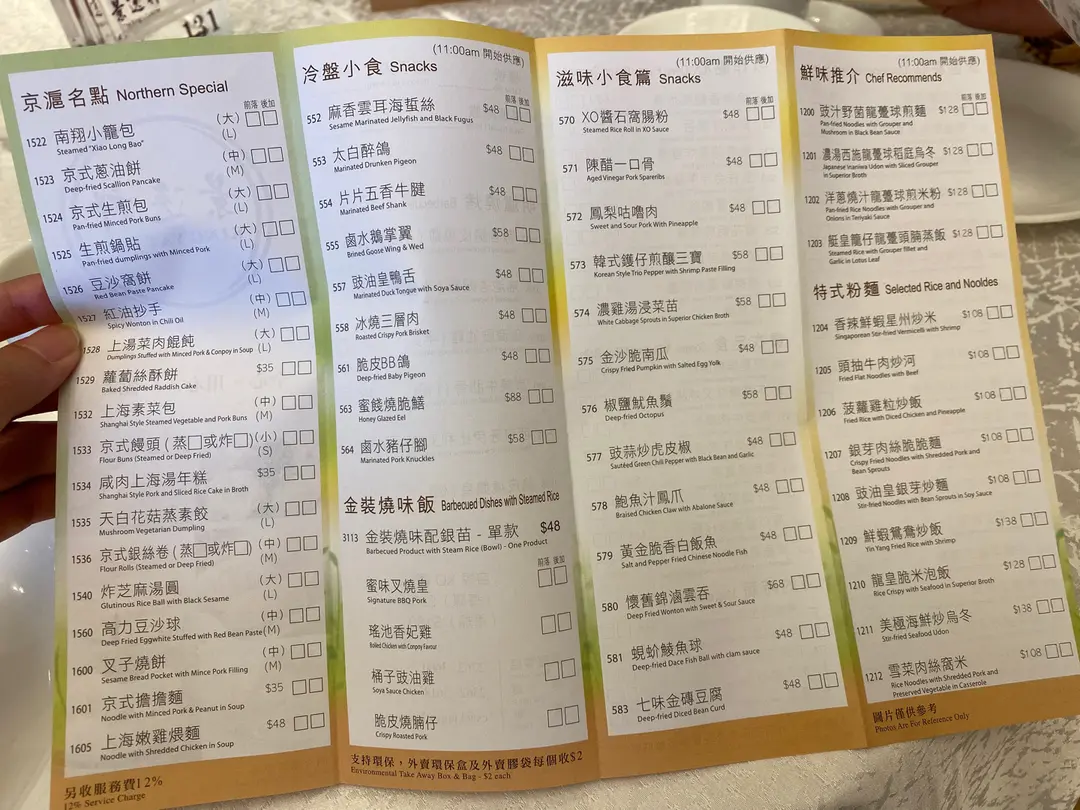 131
京滬名點 Northern Special
前落 後加
1522 南翔小籠包 (大)
Steamed "Xiao Long Bao" (L)
1523 京式蔥油餅 (中)
Deep-fried Scallion Pancake (M)
1524 京式生煎包 (大)
Pan-fried Minced Pork Buns (L)
1525 生煎鍋貼 (大)
Pan-fried dumplings with Minced Pork (L)
1526 豆沙窩餅 (大)
Red Bean Paste Pancake (L)
1527 紅油抄手 (中)
Spicy Wonton in Chili Oil (M)
1528 上湯菜肉餛飩 (大)
Dumplings Stuffed with Minced Pork & Conpoy in Soup (L)
1529 蘿蔔絲酥餅 $35
Baked Shredded Raddish Cake
1532 上海素菜包 (中)
Shanghai Style Steamed Vegetable and Pork Buns (M)
1533 京式饅頭 (蒸□或炸□) (小)
Flour Buns (Steamed or Deep Fried) (S)
1534 咸肉上海湯年糕 $35
Shanghai Style Pork and Sliced Rice Cake in Broth
1535 天白花菇蒸素餃 (大)
Mushroom Vegetarian Dumpling (L)
1536 京式銀絲卷 (蒸□或炸□) (中)
Flour Rolls (Steamed or Deep Fried) (M)
1540 炸芝麻湯圓 (大)
Glutinous Rice Ball with Black Sesame (L)
1560 高力豆沙球 (中)
Deep Fried Eggwhite Stuffed with Red Bean Paste (M)
1600 叉子燒餅 (中)
Sesame Bread Pocket with Mince Pork Filling (M)
1601 京式擔擔麵 $35
Noodle with Minced Pork & Peanut in Soup
1605 上海嫩雞煨麵 $48
Noodle with Shredded Chicken in Soup
另收服務費12%
12% Service Charge
(11:00am 開始供應)
冷盤小食 Snacks
前落 後加
552 麻香雲耳海蜇絲 $48
Sesame Marinated Jellyfish and Black Fugus
553 太白醉鴿 $48
Marinated Drunken Pigeon
554 片片五香牛腱 $48
Marinated Beef Shank
555 鹵水鵝掌翼 $58
Brined Goose Wing & Wed
557 豉油皇鴨舌 $48
Marinated Duck Tongue with Soya Sauce
558 冰燒三層肉 $48
Roasted Crispy Pork Brisket
561 脆皮BB鴿 $48
Deep-fried Baby Pigeon
563 蜜餞燒脆鱔 $88
Honey Glazed Eel
564 鹵水豬仔腳 $58
Marinated Pork Knuckles
金裝燒味飯 Barbecued Dishes with Steamed Rice
3113 金裝燒味配銀苗 - 單款 $48
Barbecued Product with Steam Rice (Bowl) - One Product
前落 後加
蜜味叉燒皇
Signature BBQ Pork
瑤池香妃雞
Boiled Chicken with Conpoy Favour
桶子豉油雞
Soya Sauce Chicken
脆皮燒腩仔
Crispy Roasted Pork
支持環保，外賣環保盒及外賣膠袋每個收$2
Environmental Take Away Box & Bag - $2 each
(11:00am 開始供應)
滋味小食篇 Snacks
前落 後加
570 XO醬石窩腸粉 $48
Steamed Rice Roll in XO Sauce
571 陳醋一口骨 $48
Aged Vinegar Pork Spareribs
572 鳳梨咕嚕肉 $48
Sweet and Sour Pork With Pineapple
573 韓式鑊仔煎釀三寶 $58
Korean Style Trio Pepper with Shrimp Paste Filling
574 濃雞湯浸菜苗 $58
White Cabbage Sprouts in Superior Chicken Broth
575 金沙脆南瓜 $48
Crispy Fried Pumpkin with Salted Egg Yolk
576 椒鹽魷魚鬚 $58
Deep-fried Octopus
577 豉蒜炒虎皮椒 $48
Sautéed Green Chili Pepper with Black Bean and Garlic
578 鮑魚汁鳳爪 $48
Braised Chicken Claw with Abalone Sauce
579 黃金脆香白飯魚 $48
Salt and Pepper Fried Chinese Noodle Fish
580 懷舊錦滷雲吞 $68
Deep Fried Wonton with Sweet & Sour Sauce
581 蜆蚧鯪魚球 $48
Deep-fried Dace Fish Ball with clam sauce
583 七味金磚豆腐 $48
Deep-fried Diced Bean Curd
(11:00am 開始供應)
鮮味推介 Chef Recommends
前落 後加
1200 豉汁野菌龍躉球煎麵 $128
Pan-fried Noodles with Grouper and
Mushroom in Black Bean Sauce
1201 濃湯西施龍躉球稻庭烏冬 $128
Japanese Inaniwa Udon with Sliced Grouper
in Superior Broth
1202 洋蔥燒汁龍躉球煎米粉 $128
Pan-fried Rice Noodles with Grouper and
Onions in Teriyaki Sauce
1203 艇皇龍仔龍躉頭腩蒸飯 $128
Steamed Rice with Grouper fillet and
Garlic in Lotus Leaf
特式粉麵 Selected Rice and Nooldes
1204 香辣鮮蝦星州炒米 $108
Singaporean Stir-fried Vermicelli with Shrimp
1205 頭抽牛肉炒河 $108
Fried Flat Noodles with Beef
1206 菠蘿雞粒炒飯 $108
Fried Rice with Diced Chicken and Pineapple
1207 銀芽肉絲脆脆麵 $108
Crispy Fried Noodles with Shredded Pork and
Bean Sprouts
1208 豉油皇銀芽炒麵 $108
Stir-fried Noodles with Bean Sprouts in Soy Sauce
1209 鮮蝦鴛鴦炒飯 $138
Yin Yang Fried Rice with Shrimp
1210 龍皇脆米泡飯 $128
Rice Crispy with Seafood in Superior Broth
1211 美極海鮮炒烏冬 $138
Stir-fried Seafood Udon
1212 雪菜肉絲窩米 $108
Rice Noodles with Shredded Pork and
Preserved Vegetable in Casserole
圖片僅供參考
Photos Are For Reference Only